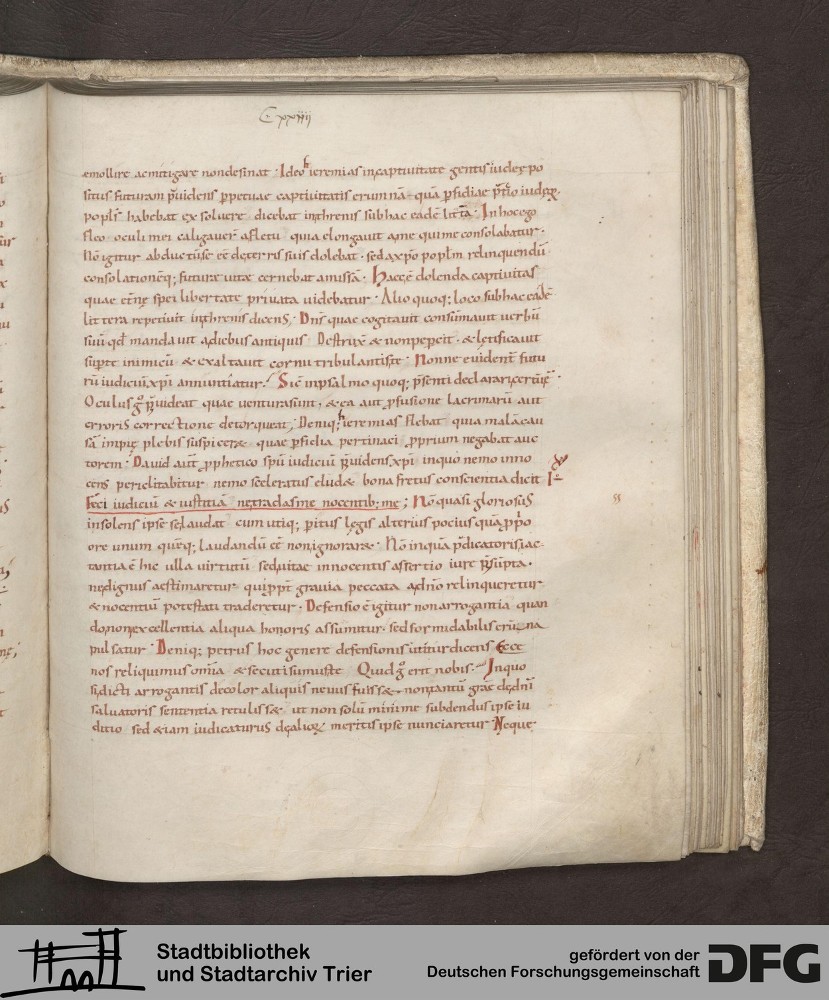 Cxxiiij
emollire ac mitigare non desinat · Ideo hieremias in captiuitate gentis iudeę po
situs futuram p̄uidens ꝑpetuae captiuitatis erumnā · quā ꝑfidiae p̄tio iudęoꝝ
poplꝰ habebat exsoluere dicebat in threnis sub hac eadē littā · In hoc ego
fleo · oculi mei caligauer̄ a fletu quia elongauit a me qui me consolabatur ·
Nō igitur abductū se eē de terris suis dolebat · sed a xpo poplm relinquendū
consolationēq; futurae uitae cernebat amissā · Haec ē dolenda captiuitas
quae eterne spei libertate priuata uidebatur · Alio quoq; loco sub hac eadē
littera repetiuit in threnis dicens · Dns̄ quae cogitauit consūmauit uerbū
suū qd̄ mandauit a diebus antiquis · Destrixit & non pepcit · & lętificauit
supte inimicū & exaltauit cornu tribulantis te · Nonne euident futu
rū iudiciū xpi annuntiatur · Sic in psalmo quoq; p̄senti declarari cernite ·
Oculus g̊ p̄uideat quae uentura sunt , & ea aut ꝓfusione lacrimarū aut
erroris correctione detorqueat , Deniq; hieremias flebat quia malā cau
sā impię plebis suspiceret quae ꝑfidia pertinaci ꝓprium negabat auc
torem · Dauid aut ꝓphetico spū iudiciū p̄uidens xpi in quo nemo inno
cens periclitabitur nemo sceleratus eludet bona fretus conscientia dicit
Feci iudiciū & iustitiā ne tradas me nocentib; me ; Nō quasi gloriosus
insolens ipse se laudat cum utiq; ꝑitus legis alterius pocius quā ꝓprio
ore unum quēq; laudandū eē non ignoraret · Nō inquā p̄dicatoris iac
tantia ē hic ulla uirtutū sed uitae innocentis assertio iure p̄sūpta ·
ne dignus aestimaretur qui ꝓpt grauia peccata a dn̄o relinqueretur
& nocentiū potestati traderetur · Defensio ē igitur non arrogantia quan
do non excellentia aliqua honoris assumitur · sed formidabilis erūna
pulsatur · Deniq; petrus hoc genere defensionis utitur dicens Ecce
nos reliquimus om̄ia & secuti sumus te Quid g̊ erit nobis · In quo
si dicti arrogantis decolor aliquis neuus fuisset · non tantū grae de dn̄i
saluatoris sententia retulisset ut non solū minime subdendus ipse iu
ditio sed etiam iudicaturus de alioꝝ meritis ipse nunciaretur · Neque
Stadtbibliothek
und Stadtarchiv Trier
gefördert von der
Deutschen Forschungsgemeinschaft
DFG